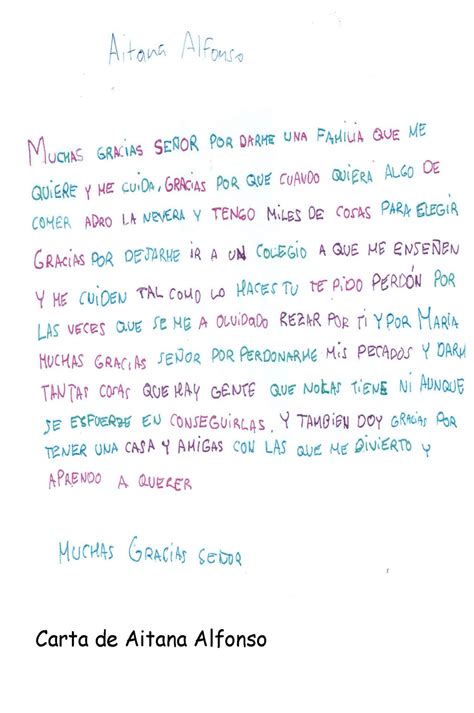 Aitana Alfonso
MUCHAS GRACIAS SEÑOR POR DARME UNA FAMILIA QUE ME
QUIERE Y ME CUIDA, GRACIAS POR QUE CUANDO QUIERA ALGO DE
COMER ADRO LA NEVERA Y TENGO MILES DE COSAS PARA ELEGIR
GRACIAS POR DEJARME IR A UN COLEGIO A QUE ME ENSEÑEN
Y ME CUIDEN TAL COMO LO HACES TU TE PIDO PERDÓN POR
LAS VECES QUE SE ME A OLVIDADO REZAR POR TI Y POR MARÍA
MUCHAS GRACIAS SEÑOR POR PERDONARME MIS PECADOS Y DARM
TANTAS COSAS QUE HAY GENTE QUE NO LAS TIENE NI AUNQUE
SE ESFUERZE EN CONSEGUIRLAS, Y TAMBIEN DOY GRACIAS POR
TENER UNA CASA Y AMIGAS CON LAS QUE ME DIVIERTO Y
APRENDO A QUERER
MUCHAS GRACIAS SEÑOR
Carta de Aitana Alfonso